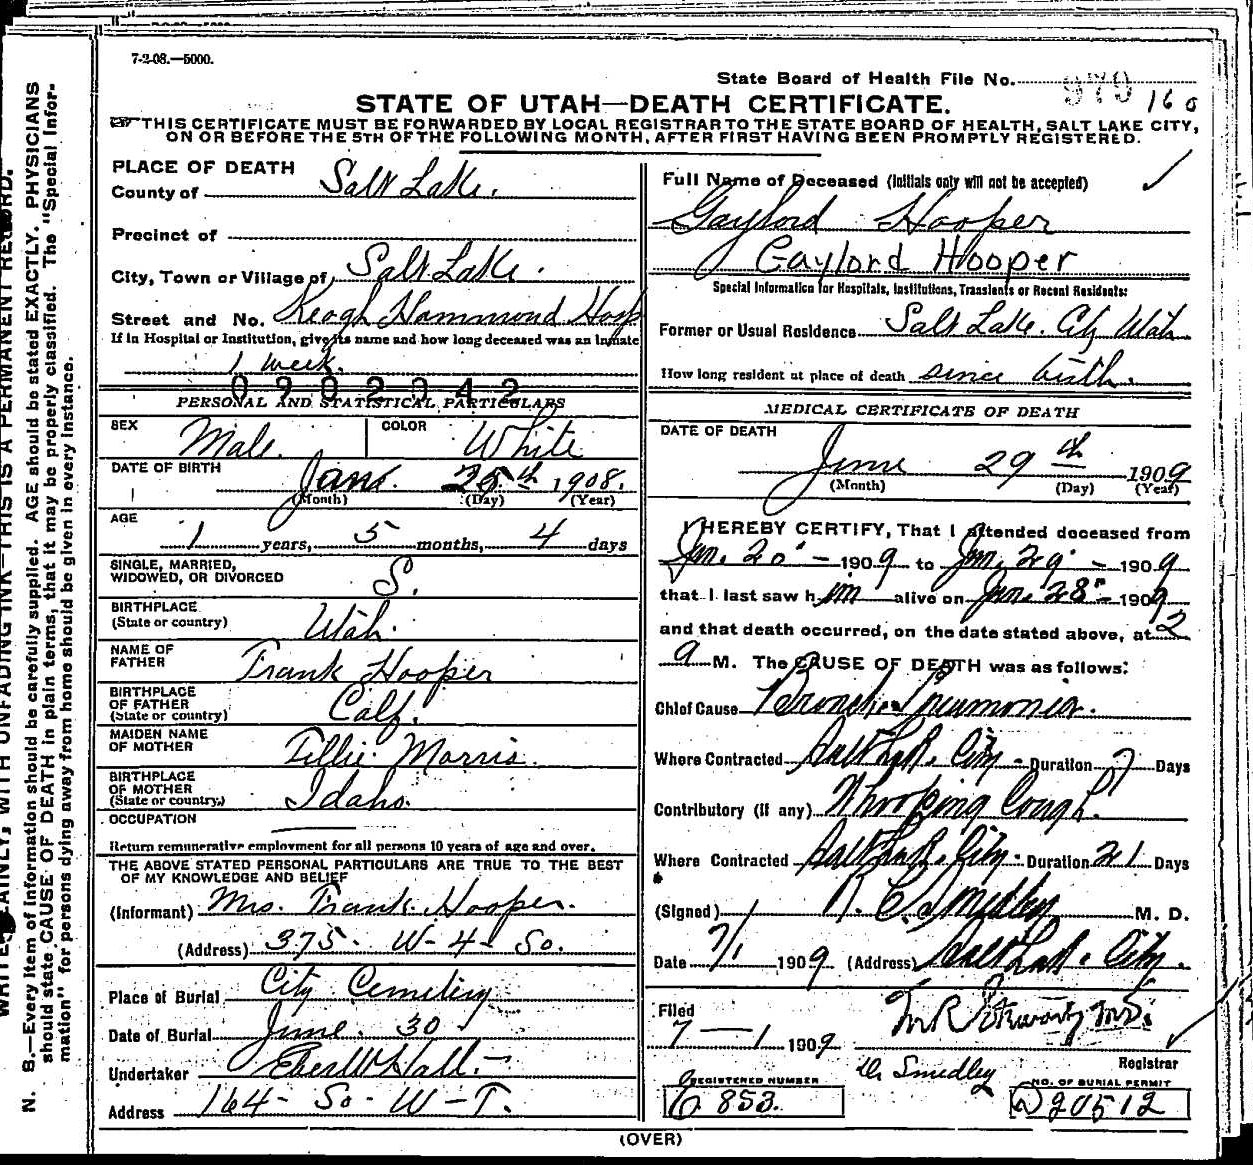 7-2-08.—5000.
State Board of Health File No. 979 160
STATE OF UTAH—DEATH CERTIFICATE.
THIS CERTIFICATE MUST BE FORWARDED BY LOCAL REGISTRAR TO THE STATE BOARD OF HEALTH, SALT LAKE CITY,
ON OR BEFORE THE 5TH OF THE FOLLOWING MONTH, AFTER FIRST HAVING BEEN PROMPTLY REGISTERED.
PLACE OF DEATH
County of Salt Lake.
Precinct of
City, Town or Village of Salt Lake.
Street and No. Keogh Hammond Hosp
If in Hospital or Institution, give its name and how long deceased was an inmate
1 week.
0902342
PERSONAL AND STATISTICAL PARTICULARS
SEX Male. COLOR White
DATE OF BIRTH Jan. 25th 1908.
(Month) (Day) (Year)
AGE
1 years, 5 months, 4 days
SINGLE, MARRIED,
WIDOWED, OR DIVORCED S.
BIRTHPLACE
(State or country) Utah.
NAME OF
FATHER Frank Hooper
BIRTHPLACE
OF FATHER
(State or country) Calf.
MAIDEN NAME
OF MOTHER Tillie Morris.
BIRTHPLACE
OF MOTHER
(State or country) Idaho.
OCCUPATION
Return remunerative employment for all persons 10 years of age and over.
THE ABOVE STATED PERSONAL PARTICULARS ARE TRUE TO THE BEST
OF MY KNOWLEDGE AND BELIEF
(Informant) Mrs. Frank Hooper.
(Address) 375- W-4- So.
Place of Burial City Cemetery
Date of Burial June 30
Undertaker Eber W Hall.
Address 164- So- W-T.
Full Name of Deceased (Initials only will not be accepted)
Gaylord Hooper
Gaylord Hooper
Special Information for Hospitals, Institutions, Transients or Recent Residents:
Former or Usual Residence Salt Lake City Utah
How long resident at place of death since birth.
MEDICAL CERTIFICATE OF DEATH
DATE OF DEATH
June 29th 1909
(Month) (Day) (Year)
I HEREBY CERTIFY, That I attended deceased from
Jun. 20 - 1909 to Jun. 29 - 1909
that I last saw him alive on Jun. 28 - 1909
and that death occurred, on the date stated above, at 2
a M. The CAUSE OF DEATH was as follows:
Chief Cause Broncho Pneumonia.
Where Contracted Salt Lak. City - Duration 7 Days
Contributory (if any) Whooping Cough.
Where Contracted Salt Lak. City - Duration 21 Days
(Signed) R. C. Smedley M. D.
Date 7/1 1909 (Address) Salt Lak. City.
Filed
7 — 1 1909 M R Stewart MD.
Registrar
W. Smedley
REGISTERED NUMBER
C. 853.
NO. OF BURIAL PERMIT
D 20512
(OVER)
N. B.—Every item of information should be carefully supplied. AGE should be stated EXACTLY. PHYSICIANS
should state CAUSE OF DEATH in plain terms, that it may be properly classified. The "Special Infor-
mation" for persons dying away from home should be given in every instance.